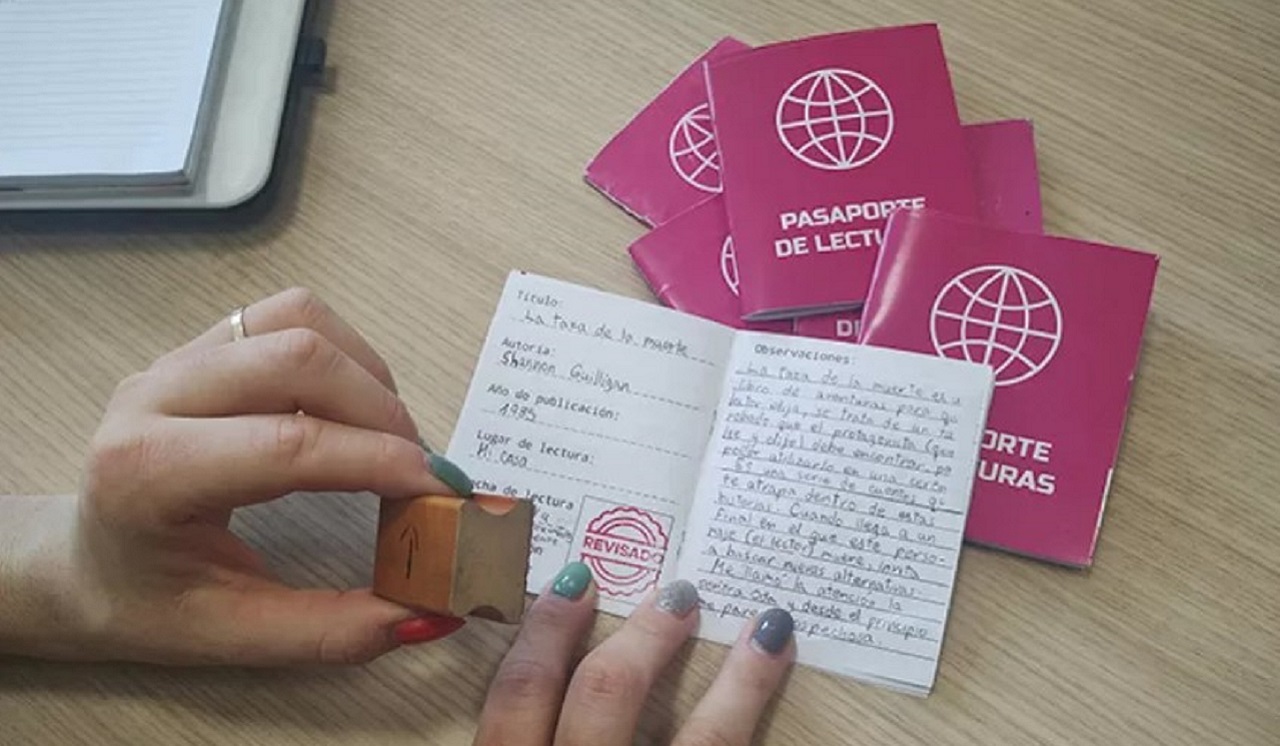 PASAPORTE
DE LECTU
DE
ORTE
URAS
Título:
La taza de la muerte
Autoría:
Shannon Guilligan
Año de publicación:
1985
Lugar de lectura:
Mi casa
cha de lectura
REVISADO
Observaciones:
La taza de la muerte es u
libro de aventuras para qu
lator elija, se trata de un
robado que el protagonista (que
lee y elije) debe encontrar, pa
poder utilizarlo en una cerem
Es una serie de cuentos q
te atrapa dentro de estas
historias. Cuando llega a un
final en el que este perso-
naje (el lector) muere,
a buscar nuevas alternativas.
Me llamó la atención la
y desde el principio
me pare